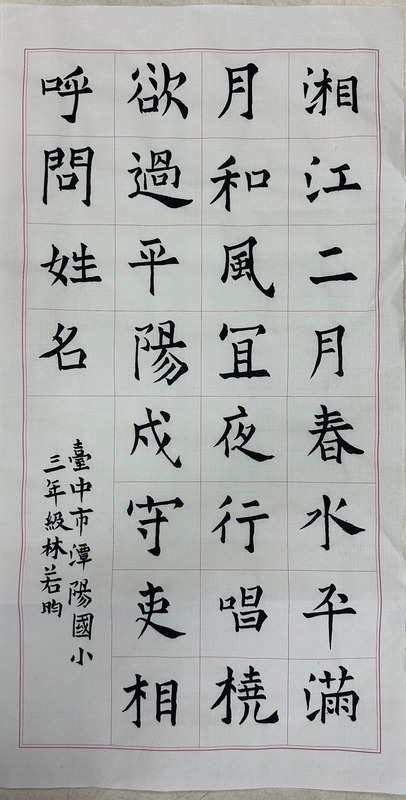 湘江二月春水平滿
月和風宜夜行唱橈
欲過平陽戍守吏相
呼問姓名
臺中市潭陽國小
三年級林若昀